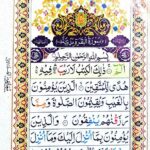 بِسْمِ اللهِ الرَّحْمٰنِ الرَّحِيْمِ
ذٰلِكَ الْكِتٰبُ لَا رَيْبَ فِيْهِ
هُدًى لِّلْمُتَّقِيْنَ الَّذِيْنَ يُؤْمِنُوْنَ
بِالْغَيْبِ وَيُقِيْمُوْنَ الصَّلٰوةَ وَمِمَّا
رَزَقْنٰهُمْ يُنْفِقُوْنَ وَالَّذِيْنَ
يُؤْمِنُوْنَ بِمَا اُنْزِلَ اِلَيْكَ وَمَا اُنْزِلَ